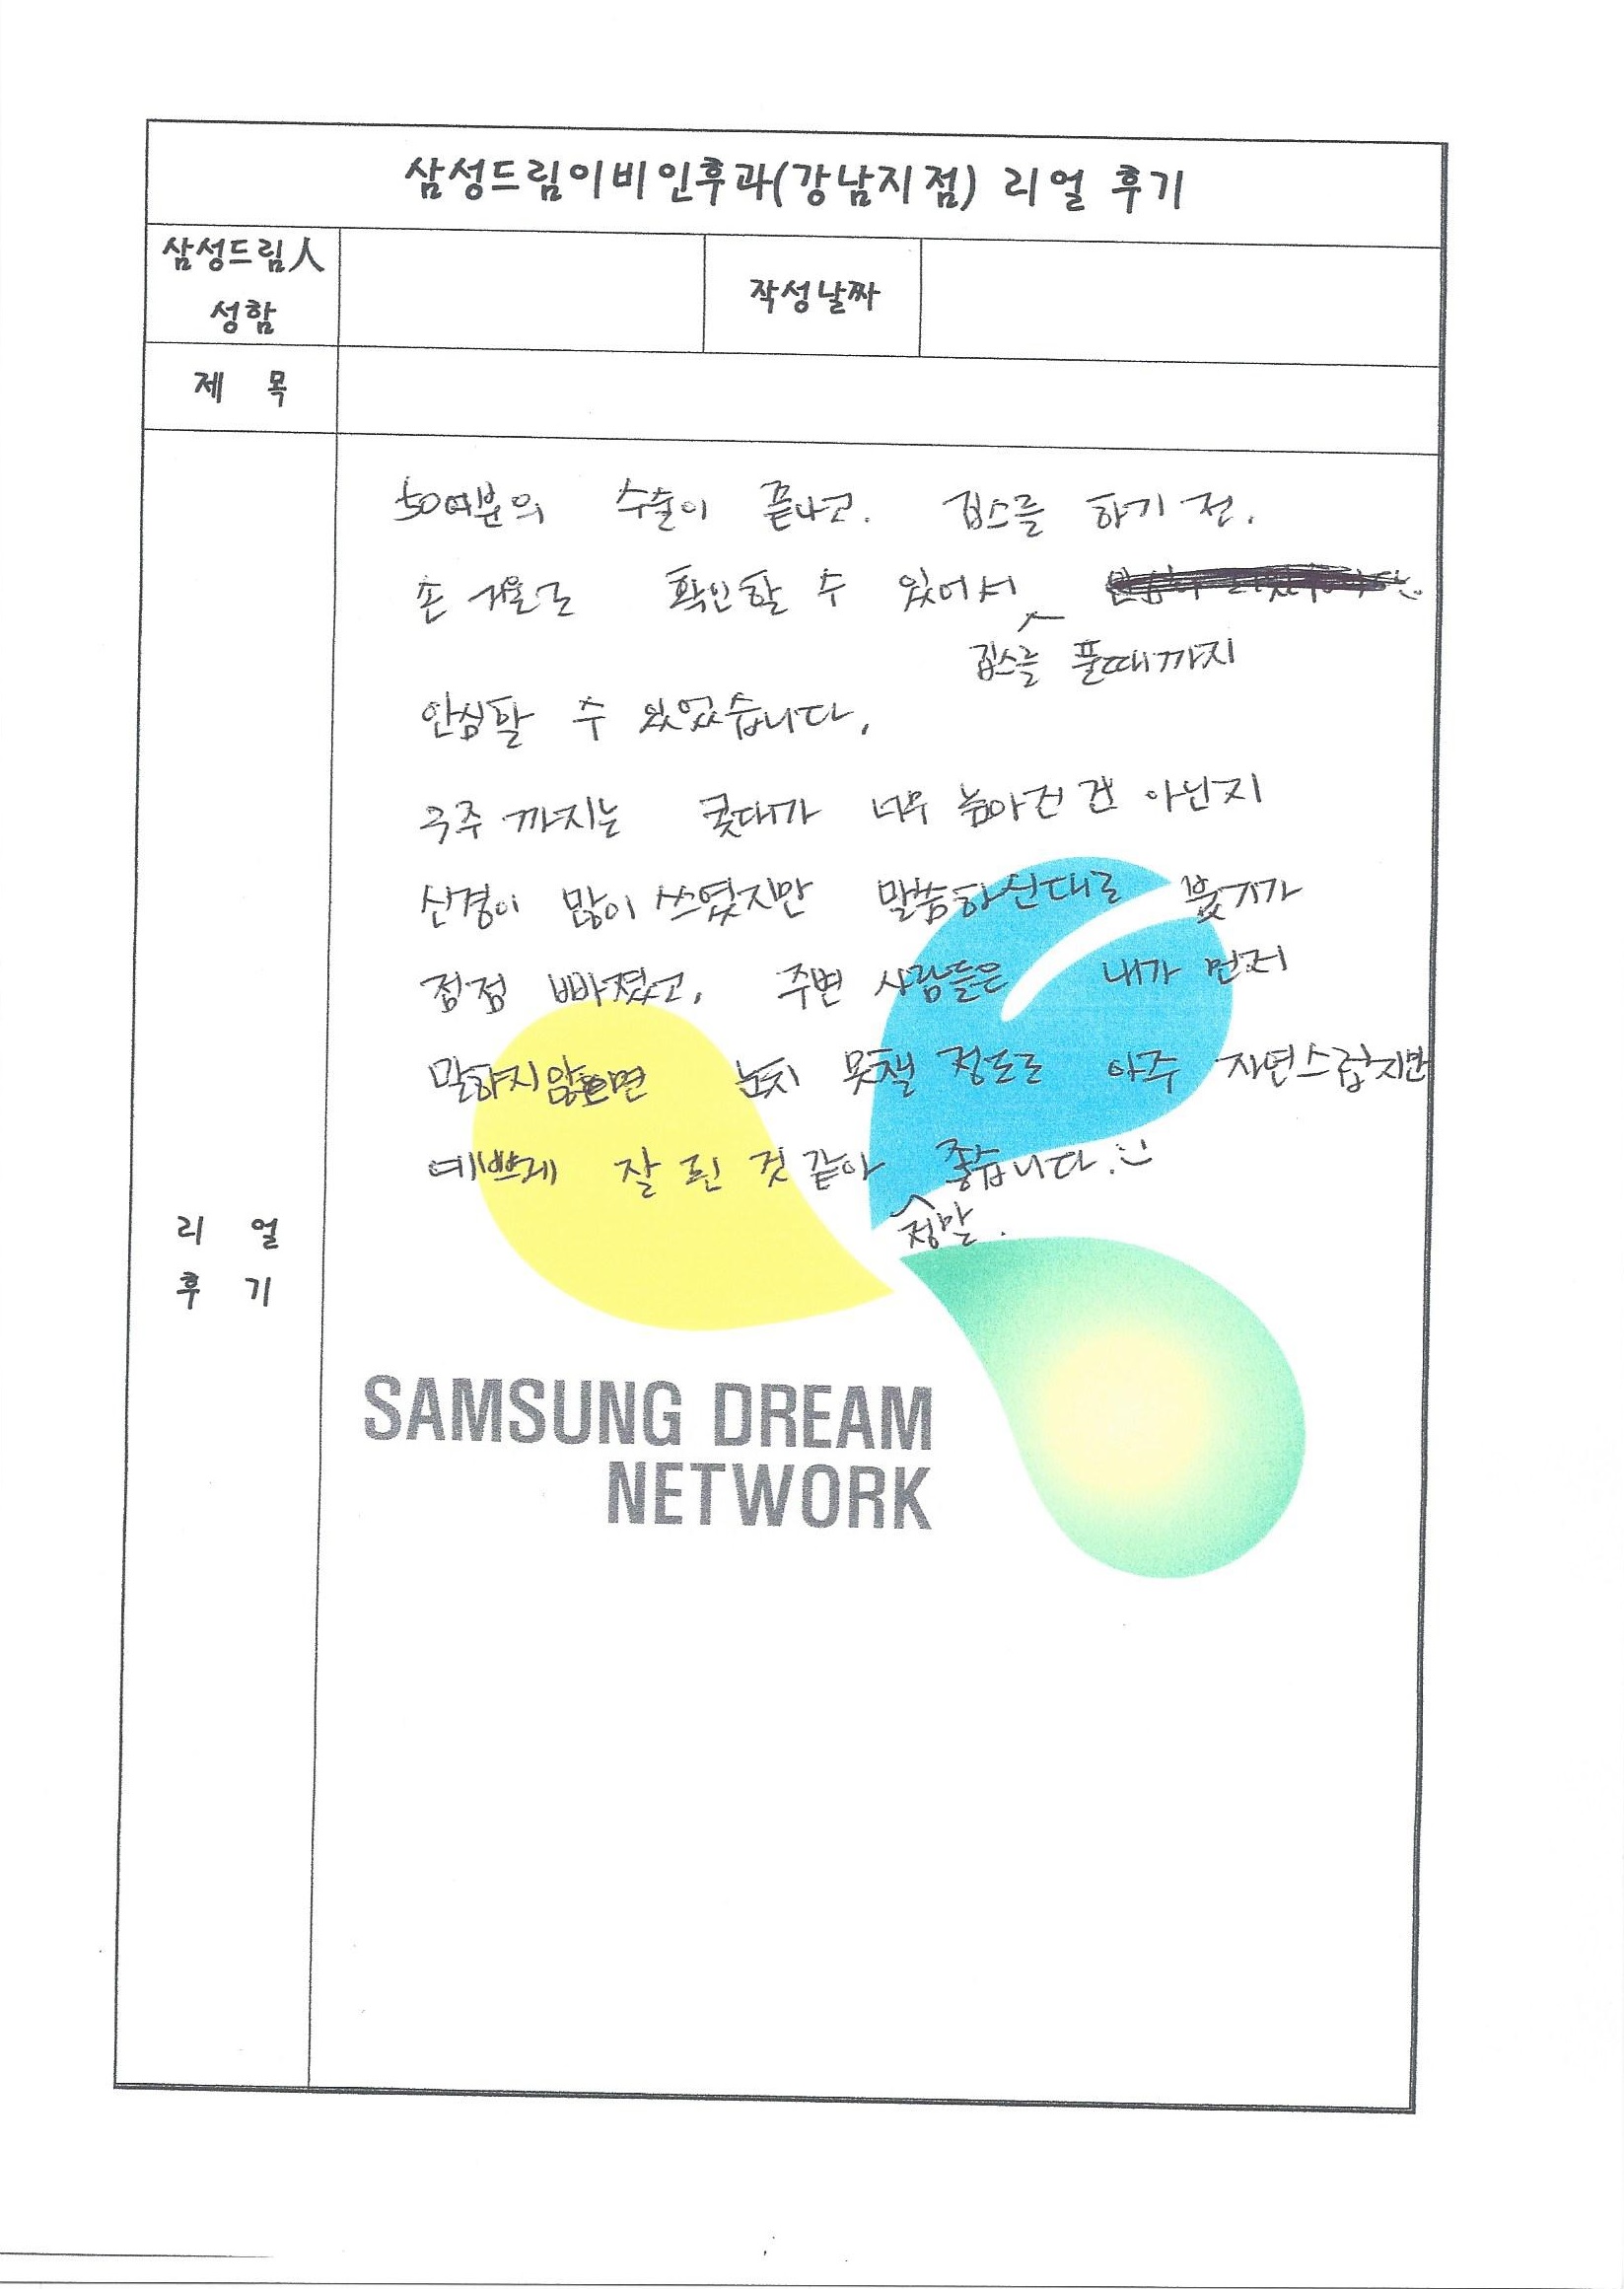 삼성드림이비인후과(강남지점) 리얼 후기
삼성드림人
성함
작성날짜
제 목
50여분의 수술이 끝나고. 깁스를 하기 전.
손 거울로 확인할 수 있어서
깁스를 풀때까지
안심할 수 있었습니다.
구주 까지는 콧대가 너무 높아진 건 아닌지
신경이 많이 쓰였지만 말씀하신대로 붓기가
점점 빠졌고, 주변 사람들은 내가 먼저
말하지않으면 눈치 못챌 정도로 아주 자연스럽지만
예쁘게 잘 된 것 같아 좋습니다.
정말.
리 얼
후 기
SAMSUNG DREAM
NETWORK